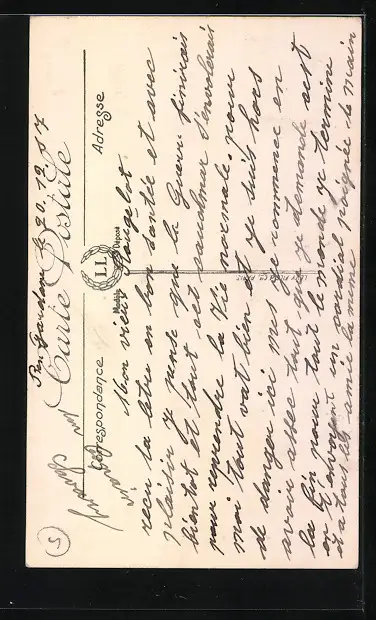 20.12.
Carte Postale
Correspondence
Adresse
LL
Modèle Déposé
Mon vieux
reçu ta lettre en bon santée et avec
plaisir J pense que la Guerre finirais
bientot et tout cet
pour reprendre la vie normale. pour
moi tout vat bien et je suis hors
de danger ici mes je commence en
avoir assez tout que je demande cest
la fin pour tout le monde je termine
en t'envoyant un cordial poignée de main
et a tous les amie la meme
5